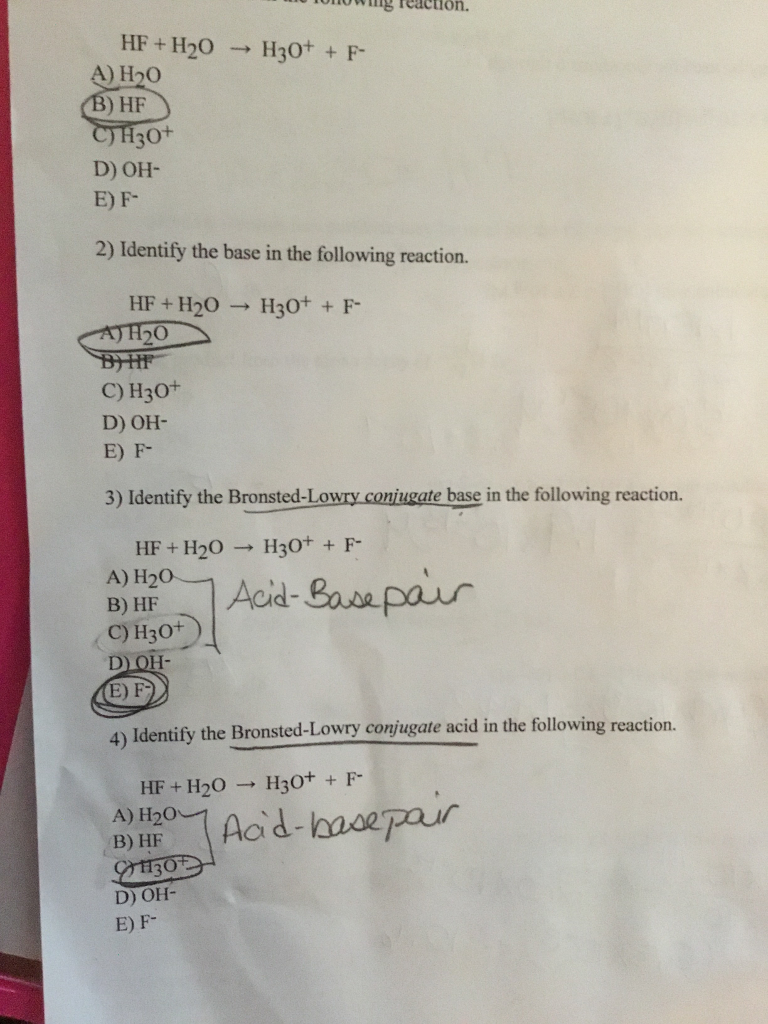 the following reaction.
HF + H₂O → H₃O⁺ + F-
A) H₂O
B) HF
C) H₃O⁺
D) OH-
E) F-
2) Identify the base in the following reaction.
HF + H₂O → H₃O⁺ + F-
A) H₂O
B) HF
C) H₃O⁺
D) OH-
E) F-
3) Identify the Bronsted-Lowry conjugate base in the following reaction.
HF + H₂O → H₃O⁺ + F-
A) H₂O
B) HF
Acid-Base pair
C) H₃O⁺
D) OH-
E) F-
4) Identify the Bronsted-Lowry conjugate acid in the following reaction.
HF + H₂O → H₃O⁺ + F-
A) H₂O
Acid-base pair
B) HF
C) H₃O⁺
D) OH-
E) F-